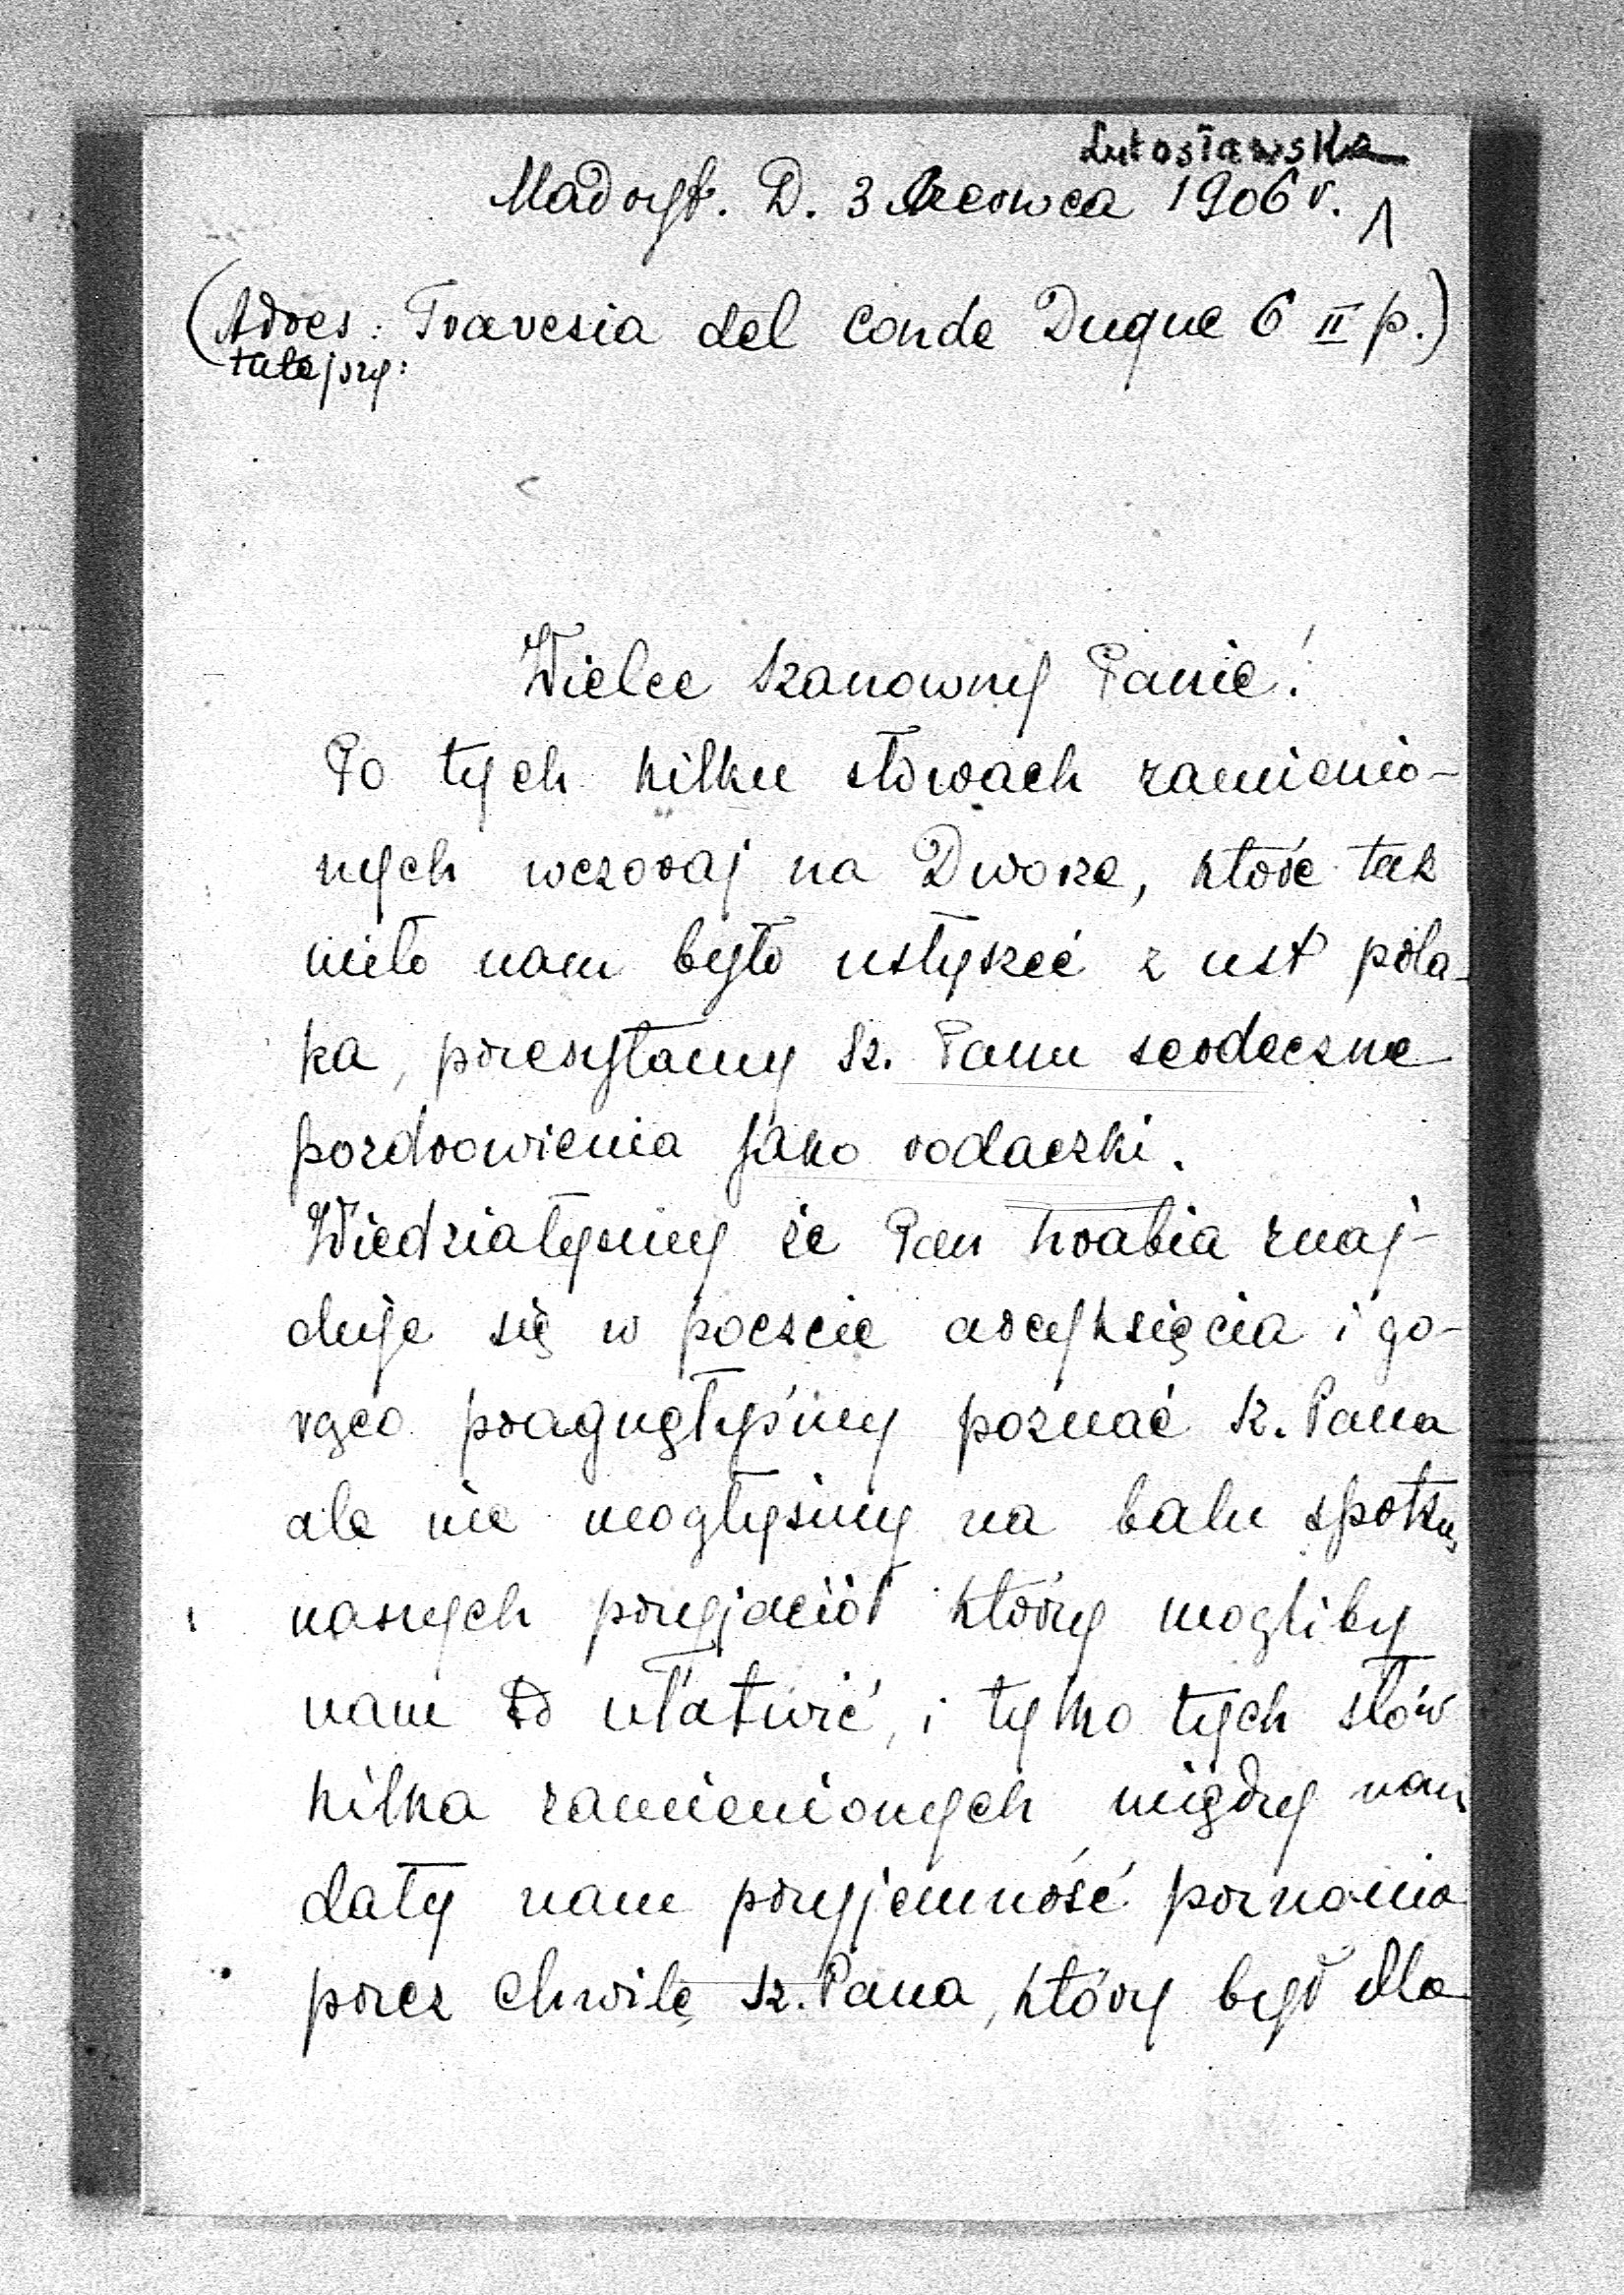 Lutosławska
Madryt. D. 3 Czerwca 1906 r.
1
(Adres: Travesia del Conde Duque 6 II p.)
tutejszy:
Wielce Szanowny Panie!
Po tych kilku słowach zamienio-
nych wczoraj na Dworze, które tak
miło nam było usłyszeć z ust pola-
ka, przesyłamy Sz. Panu serdeczne
pozdrowienia jako rodaczki.
Wiedziałyśmy że Pan hrabia znaj-
duje się w poczcie arcyksięcia i go-
rąco pragnęłyśmy poznać Sz. Pana
ale nie mogłyśmy na balu spotkać
naszych przyjaciół którzy mogliby
nam to ułatwić, i tylko tych słów
kilka zamienionych między nami
dały nam przyjemność poznania
przez chwilę Sz. Pana, który był dla